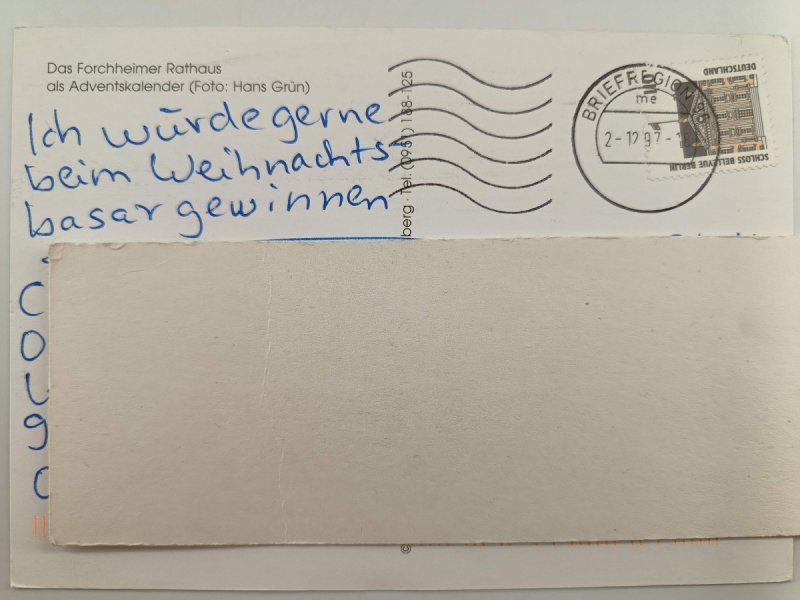 Das Forchheimer Rathaus
als Adventskalender (Foto: Hans Grün)
Ich würde gerne
beim Weihnachts-
basar gewinnen
berg · Tel. (0951) 188-125
BRIEFREGION 96
me
2-12 97-1
DEUTSCHLAND
SCHLOSS BELLEVUE BERLIN
C
O
9
©